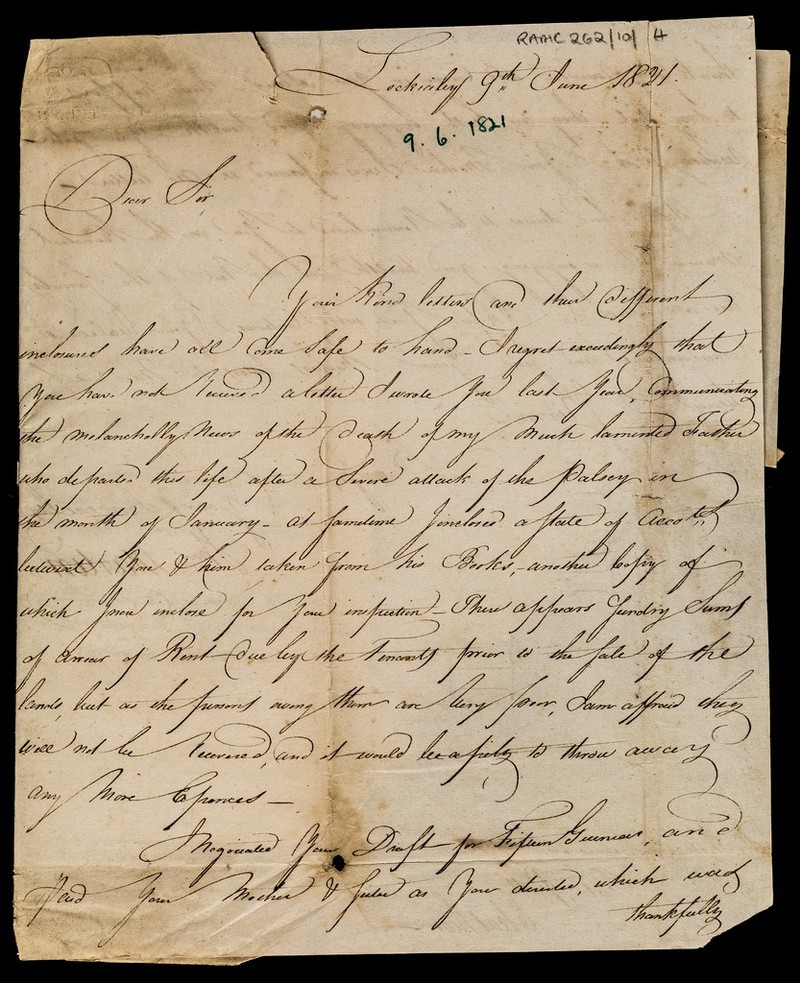 RAMC 262/10/ H
Lockerley 9th June 1821.
9. 6. 1821
Dear Sir
Your Kind letters and their different
inclosures have all come safe to hand - I regret exceedingly that
You have not received a letter I wrote You last Year, Communicating
the melancholly News of the Death of my Much lamented Father
who departed this life after a Severe attack of the Palsey in
the month of January - at sametime I inclosed a State of Accots
betwixt You & him taken from his Books, - another Copy of
which I now inclose for Your inspection - There appears Sundry Sums
of arrear of Rent due by the Tenants prior to the Sale of the
lands, but as the persons owing them are Very poor, I am affraid they
will not be recovered, and it would be a pity to throw away
any More Expences -
I Negociated Your Draft for Fifteen Guineas, and
Paid Your Mother & Sister as You directed, which was
thankfully